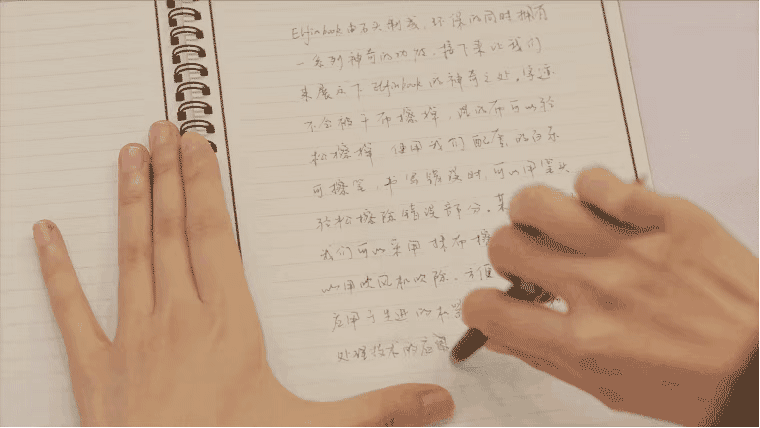 Elfinbook由石头制成,环保的同时拥有
一系列神奇的功能,接下来让我们
来展示下Elfinbook的神奇之处。字迹
不会被干布擦掉,湿的布可以轻
松擦掉 使用我们配套的百乐
可擦笔,书写错误时,可以用笔头
轻松擦除错误部分。某
我们可以采用抹布擦
以用吹风机吹除。方便
应用于先进的
处理技术的应用